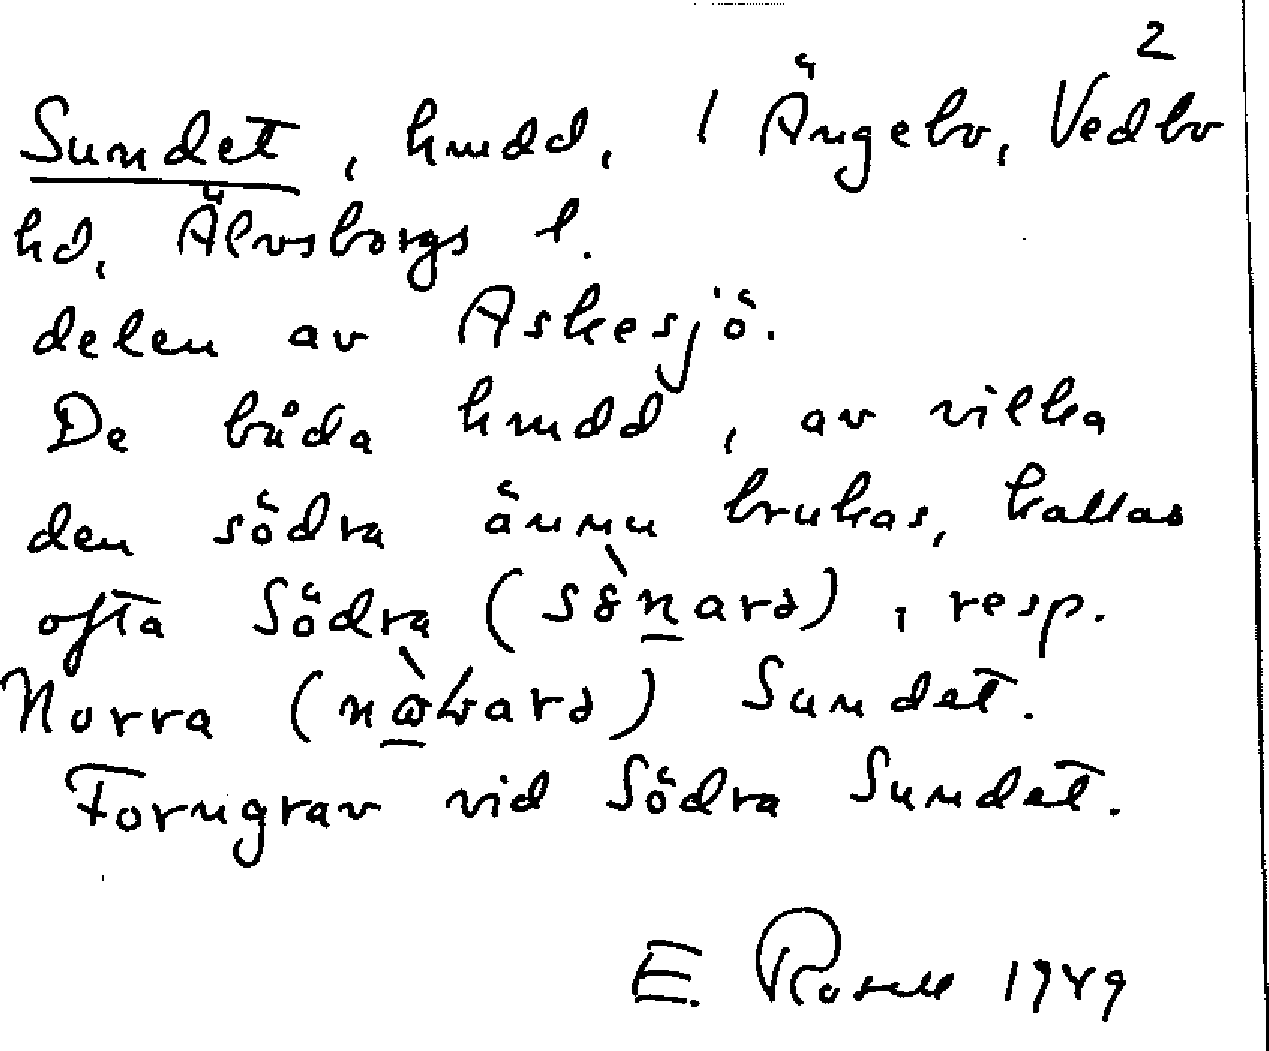 2
Sundet, hmdd, i Ängebo, Vedbo
hd, Älvsborgs l.
delen av Askesjö.
De båda hmdd, av vilka
den södra ännu brukas, kallas
ofta Södra (), resp.
Norra () Sundet.
Forngrav vid Södra Sundet.
E. Rosell 1949